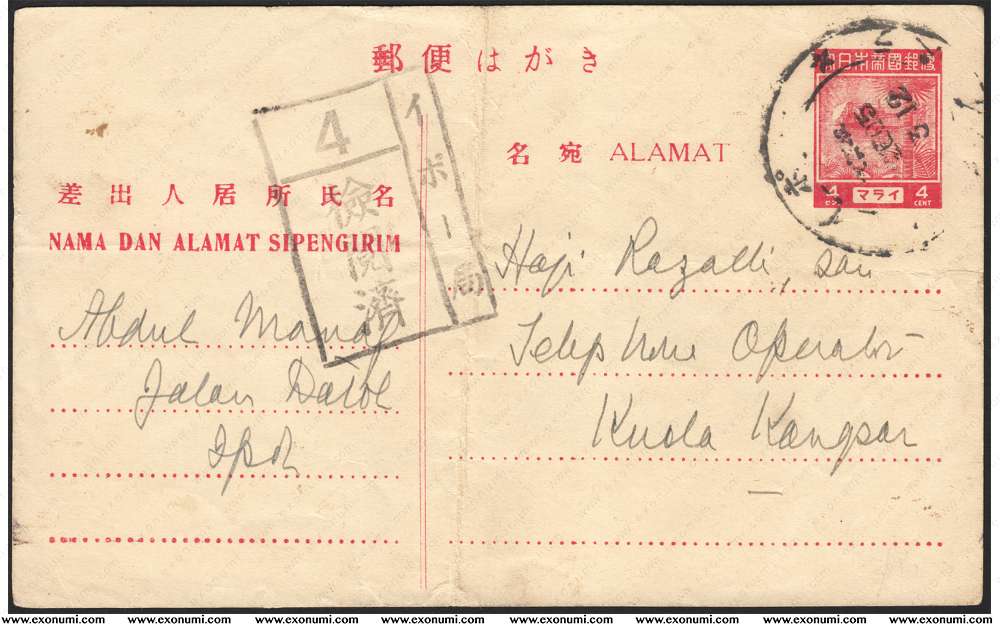 郵便はがき
大日本帝國郵便
4 セン マライ 4 CENT
名宛 ALAMAT
差出人居所氏名
NAMA DAN ALAMAT SIPENGIRIM
4
檢閱濟
イポー局
Abdul Manaf
Jalan Datoe
Ipoh
Haji Razalli, san
Telephone Operator
Kuala Kangsar
www.exonumi.com www.exonumi.com www.exonumi.com www.exonumi.com www.exonumi.com www.exonumi.com www.exonumi.com www.exonumi.com